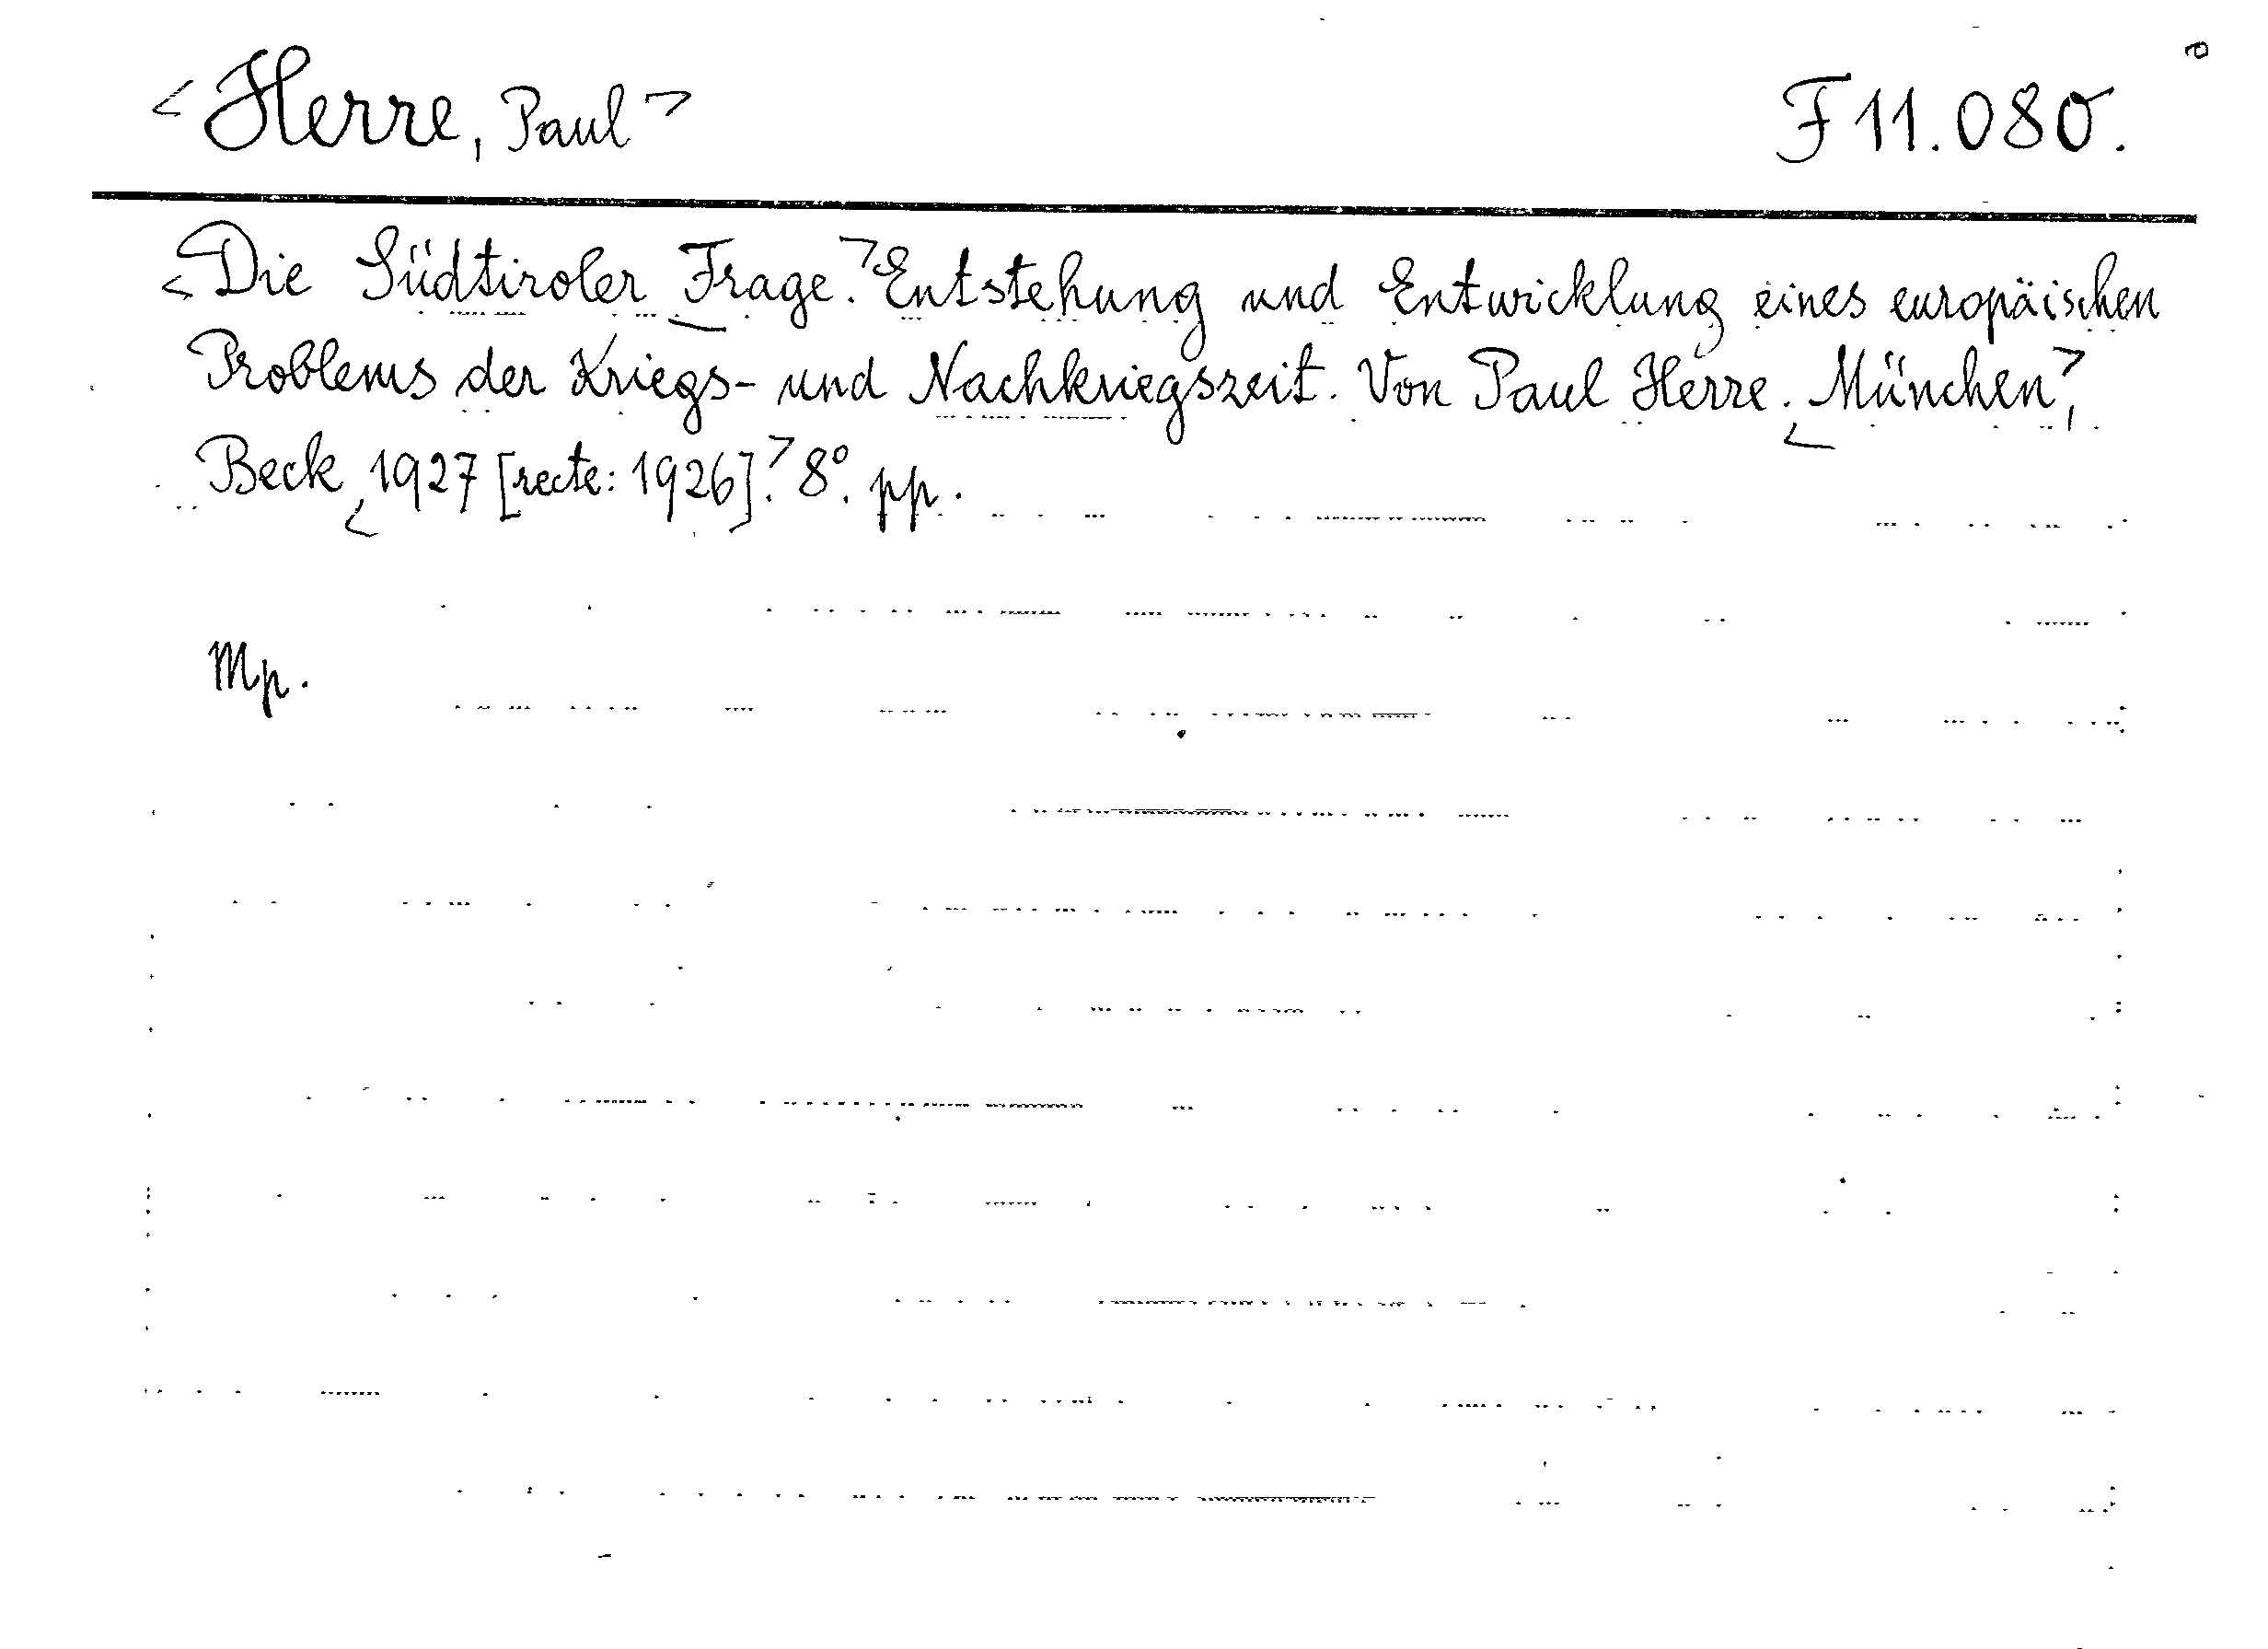 <Herre, Paul> F 11.080.
<Die Südtiroler Frage.> Entstehung und Entwicklung eines europäischen
Problems der Kriegs- und Nachkriegszeit. Von Paul Herre. <München>,
Beck, <1927 [recte: 1926].> 8°. pp.
Mp.